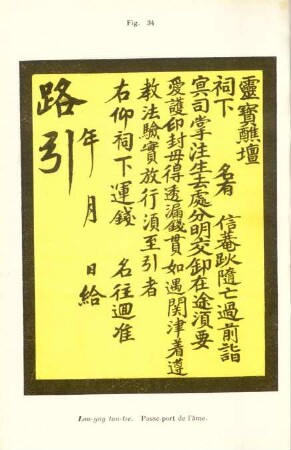 Fig. 34
靈寶醮壇
祠下 名有 信菴𧿒隨亡過前詣
冥司掌注生去處分明交卸在途須要
愛護印封毋得透漏錢貫如遇関津着遵
教法驗實放行須至引者
右仰祠下運錢 名往迴准
年 月 日給
路引
Lou-yng tan-tse. Passe-port de l'âme.